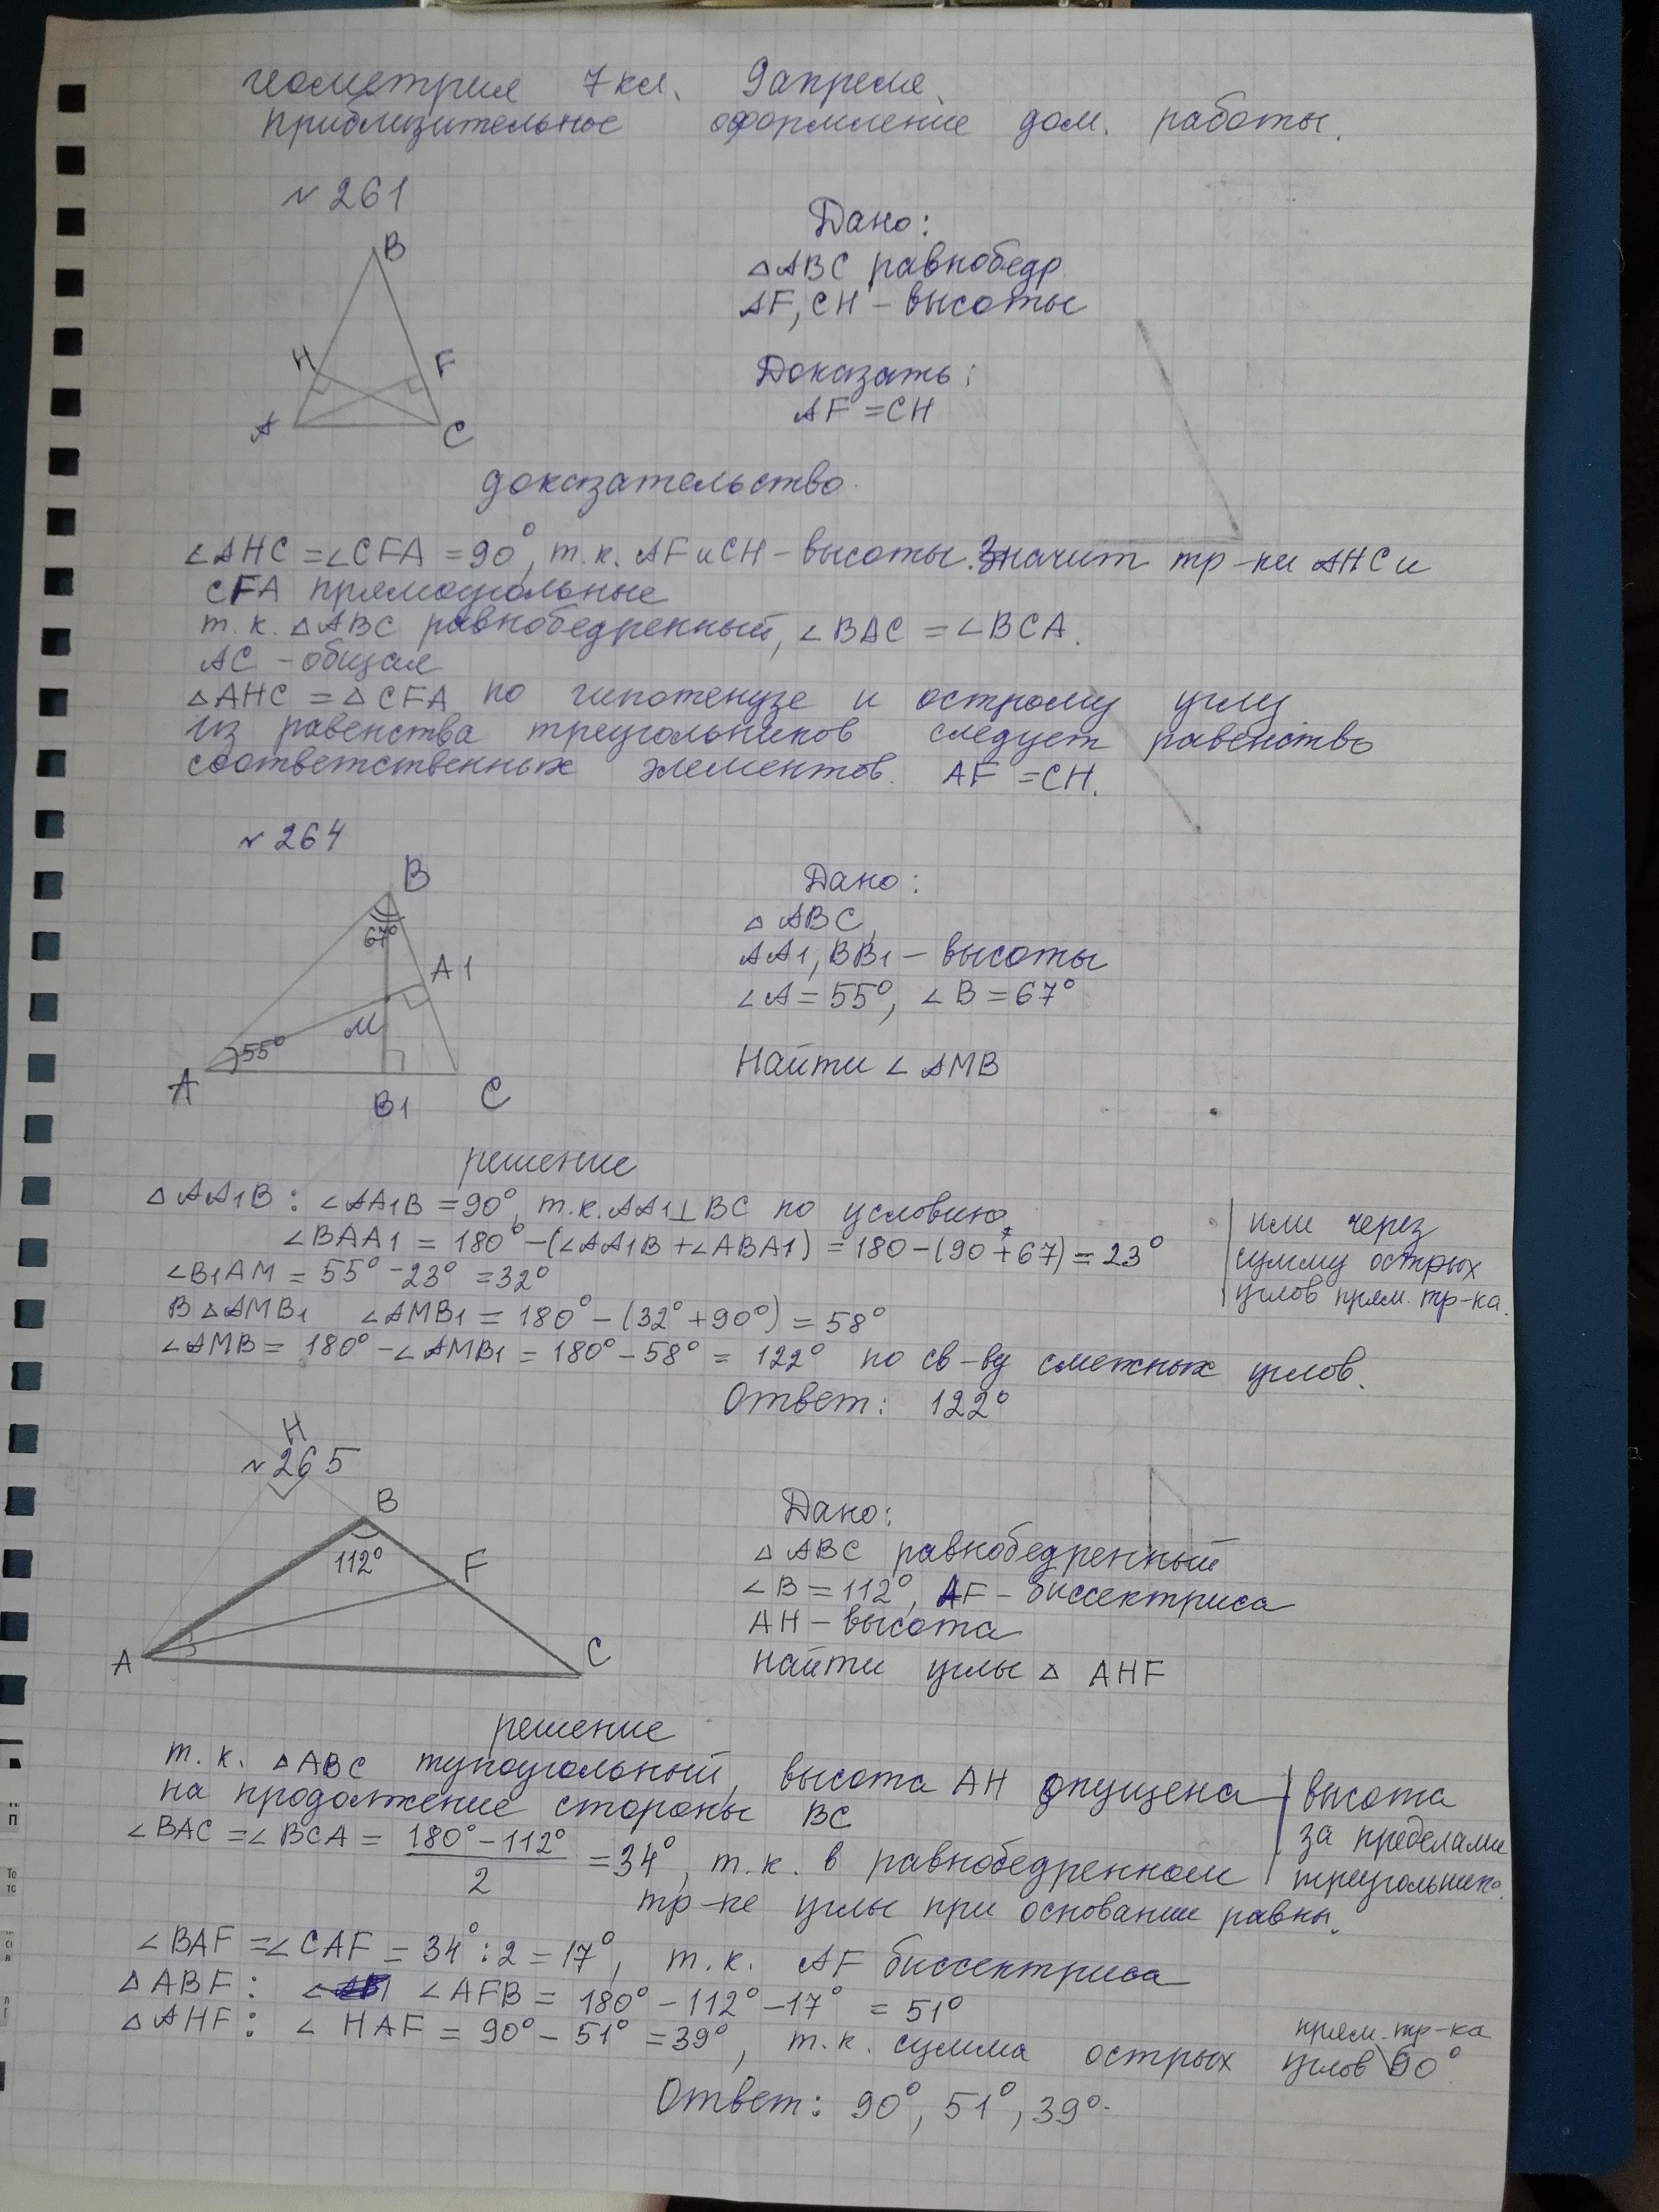 геометрия 7кл. 9апреля.
приблизительное оформление дом. работы.
№261
B
H
F
A
C
Дано:
△ABC равнобедр
AF, CH - высоты
Доказать:
AF = CH
доказательство.
∠AHC = ∠CFA = 90°, т.к. AF и CH - высоты. Значит тр-ки AHC и
CFA прямоугольные
т.к. △ABC равнобедренный, ∠BAC = ∠BCA.
AC - общая
△AHC = △CFA по гипотенузе и острому углу
из равенства треугольников следует равенство
соответственных элементов. AF = CH.
№264
B
67°
A1
M
55°
A
B1
C
Дано:
△ABC,
AA1, BB1 - высоты
∠A = 55°, ∠B = 67°
Найти ∠AMB
решение
△AA1B: ∠AA1B = 90°, т.к. AA1⊥BC по условию.
∠BAA1 = 180° - (∠AA1B + ∠ABA1) = 180 - (90 + 67) = 23°
или через
сумму острых
углов прям. тр-ка.
∠B1AM = 55° - 23° = 32°
В △AMB1 ∠AMB1 = 180° - (32° + 90°) = 58°
∠AMB = 180° - ∠AMB1 = 180° - 58° = 122° по св-ву смежных углов.
Ответ: 122°
H
№265
B
112°
F
A
C
Дано:
△ABC равнобедренный
∠B = 112°, AF - биссектриса
AH - высота
найти углы △ AHF
решение
т.к. △ABC тупоугольный, высота AH опущена
на продолжение стороны BC
высота
за пределами
треугольника.
∠BAC = ∠BCA = 180° - 112° / 2 = 34°, т.к. в равнобедренном
тр-ке углы при основании равны.
∠BAF = ∠CAF = 34° : 2 = 17°, т.к. AF биссектриса
△ABF: ∠AFB = 180° - 112° - 17° = 51°
△AHF: ∠HAF = 90° - 51° = 39°, т.к. сумма острых углов прям. тр-ка 90°.
Ответ: 90°, 51°, 39°.